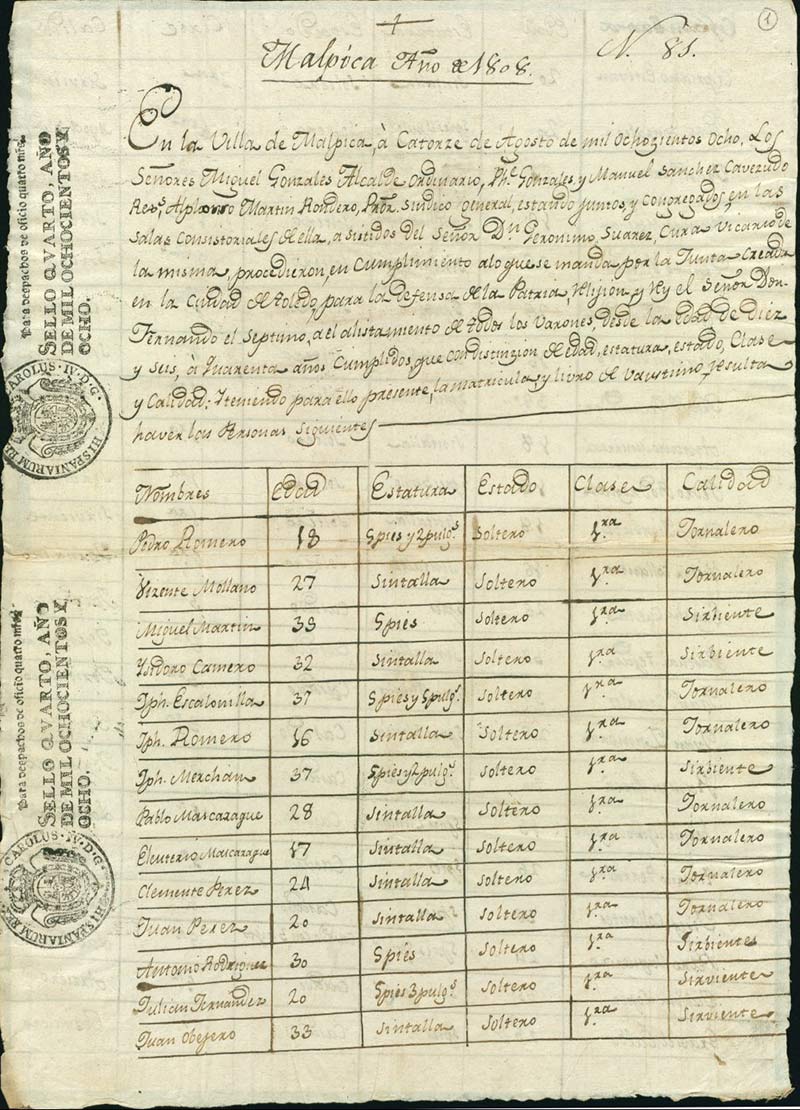 1
Malpica Año de 1808.
N. 81.
En la Villa de Malpica, à Catorze de Agosto de mil Ochozientos Ocho, Los
Señores Miguel Gonzales Alcalde Ordinario, Phe. Gonzales, y Manuel Sanchez Caverudo
Rexs. Alphonso Martin Rondero, Pror. Sindico General, estando juntos, y Congregados en las
Salas Consistoriales de ella, asistidos del Señor Dn. Geronimo Suarez, Cura Vicario de
la misma, procedieron, en Cumplimiento alo que se manda por la Junta Creada
en la Ciudad de Toledo, para la Defensa de la Patria, Relijion y Rey el Señor Don
Fernando el Septimo, a el alistamiento de todos los Varones, desde la edad de Diez
y Seis, à Quarenta años Cumplidos, que con distinzion de edad, estatura, estado, Clase
y Calidad: teniendo para ello presente, la matricula, y livro de resulta
haver las Personas siguientes
Nombres Edad Estatura Estado Clase Calidad
Pedro Romero 18 5 pies y 2 pulgs. Soltero 1ra Jornalero
Vizente Mollano 27 Sintalla Soltero 1ra Jornalero
Miguel Martin 38 5 pies Soltero 1ra Sirbiente
Ysidoro Camero 32 Sintalla Soltero 1ra Sirbiente
Jph. Escalonilla 37 5 pies y 5 pulgs. Soltero 1ra Jornalero
Jph. Romero 16 Sintalla Soltero 1ra Jornalero
Jph. Merchan 37 5 pies y 2 pulgs. Soltero 1ra Sirbiente
Pablo Mascaraque 28 Sintalla Soltero 1ra Jornalero
Eleuterio Mascaraque 17 Sintalla Soltero 1ra Jornalero
Clemente Perez 24 Sintalla Soltero 1ra Jornalero
Juan Perez 20 Sintalla Soltero 1ra Jornalero
Antonio Rodriguez 30 5 pies Soltero 1ra Sirbiente
Julian Fernandez 20 5 pies 3 pulgs. Soltero 1ra Sirviente
Juan Obejero 33 Sintalla Soltero 1ra Sirviente
Para despachos de oficio quatro mrs.
SELLO QVARTO, AÑO
DE MIL OCHOCIENTOS Y
OCHO.
CAROLUS·IV·D·G· HISPANIARUM R
Para despachos de oficio quatro mrs.
SELLO QVARTO, AÑO
DE MIL OCHOCIENTOS Y
OCHO.
CAROLUS·IV·D·G· HISPANIARUM R